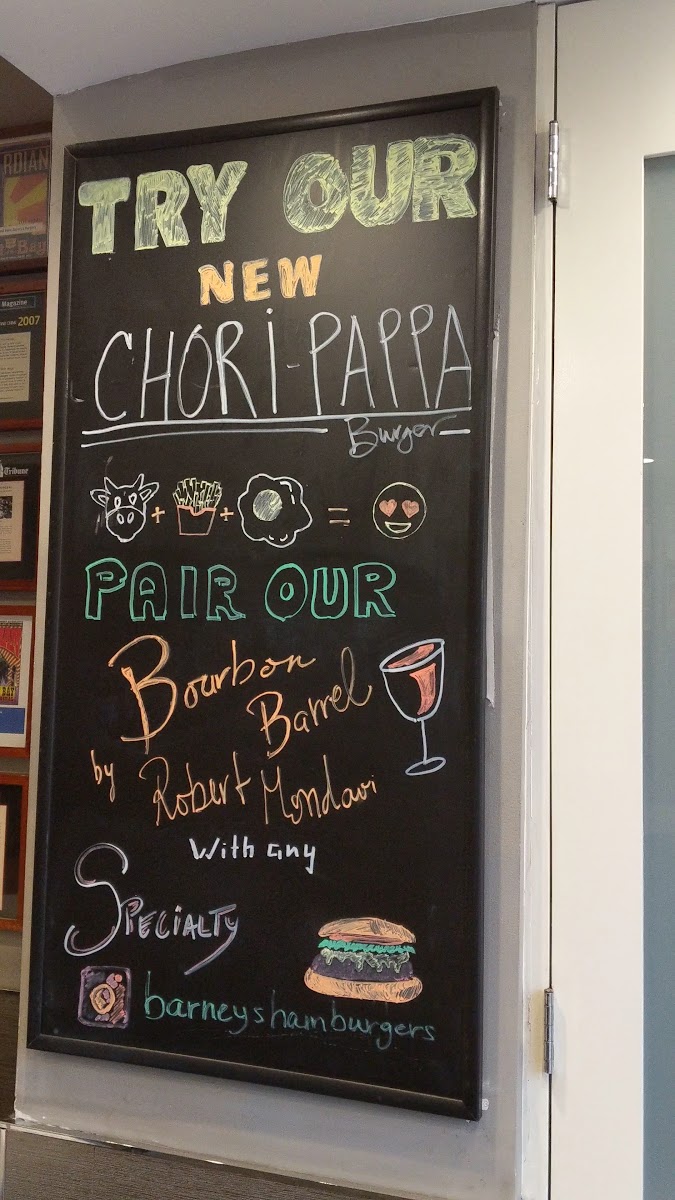 TRY OUR
NEW
CHORI-PAPPA
Burger
+ + =
PAIR OUR
Bourbon
Barrel
by Robert Mondavi
With any
Specialty
barneyshamburgers
RDIAN
Magazine
2007
Tribune